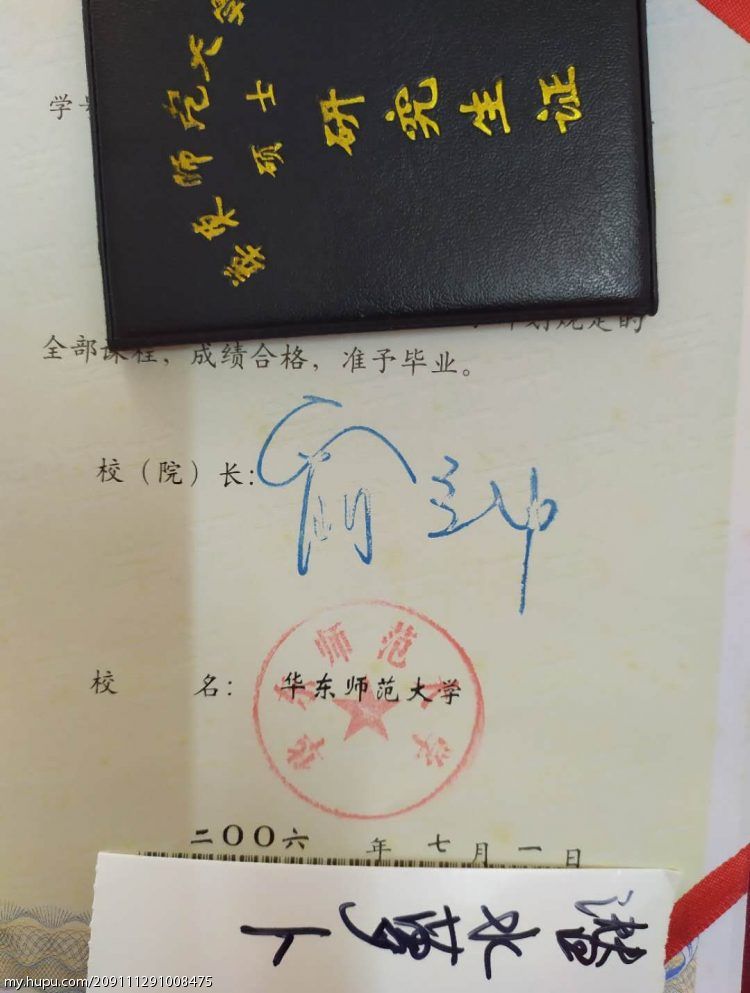 华东师范大学
硕士
研究生证
学号
规定的
全部课程，成绩合格，准予毕业。
校（院）长：
俞立中
校 名：华东师范大学
华东师范大学
二〇〇六 年 七 月 一 日
潜水萝卜
my.hupu.com/209111291008475